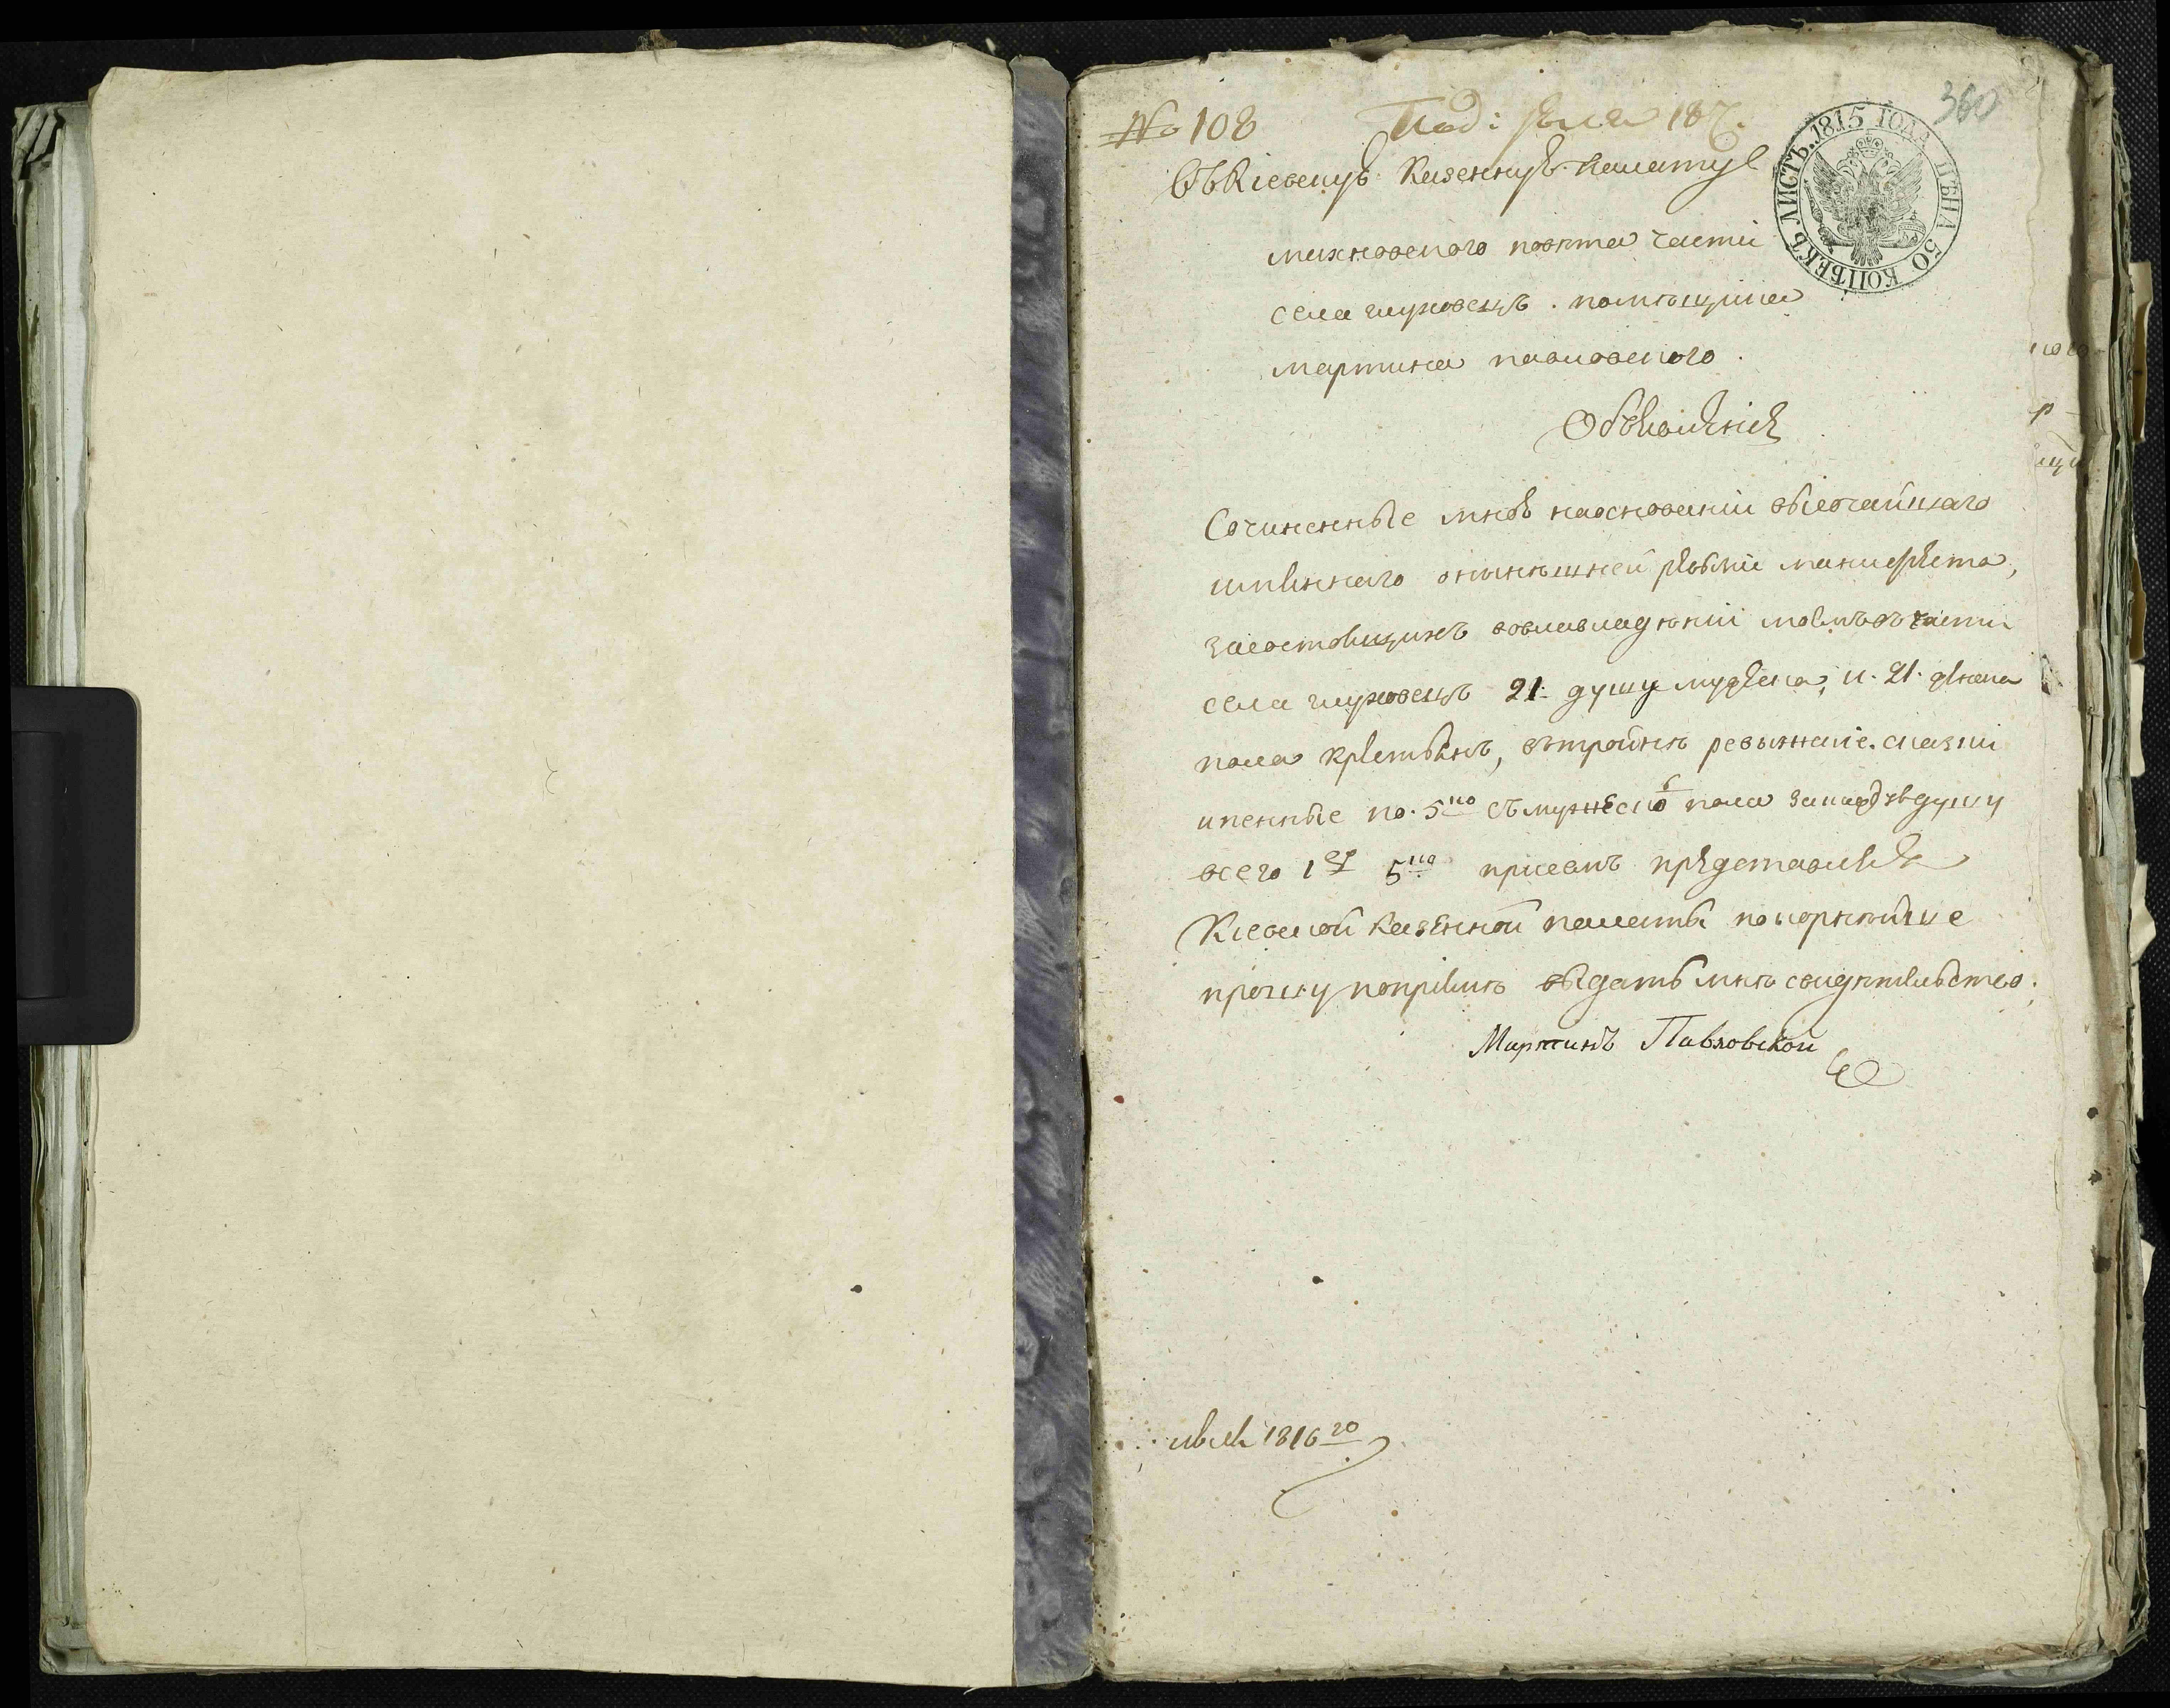 № 108
Под: Июля 187.
360
ЛИСТЪ. 1815 ГОДА ЦѢНА 50 КОПѢЕКЪ
Въ Киевскую Казенную Палату
махновского повѣта части
села глуховецъ . помѣщика
мартина павловского .
Объявление
Сочиненные мною наоснованіи высочайшаго
имяннаго онынѣшней ревизіи манифеста,
засостоящихъ вовлавладѣніи моемъ въ части
села глуховецъ 21. душу мужеска, и. 21. женска
пола крестьянъ, втройнѣ ревизкаіе. сказки
ипенные по. 5 ко съ мужеско пола закаждую душу
всего 1 ру 5 ко присемъ представляя
Киевской казенной палаты покорнѣйше
прошу поприемѣ выдать мнѣ свидѣтельство.
Мартинъ Павловской
июля 1816 20